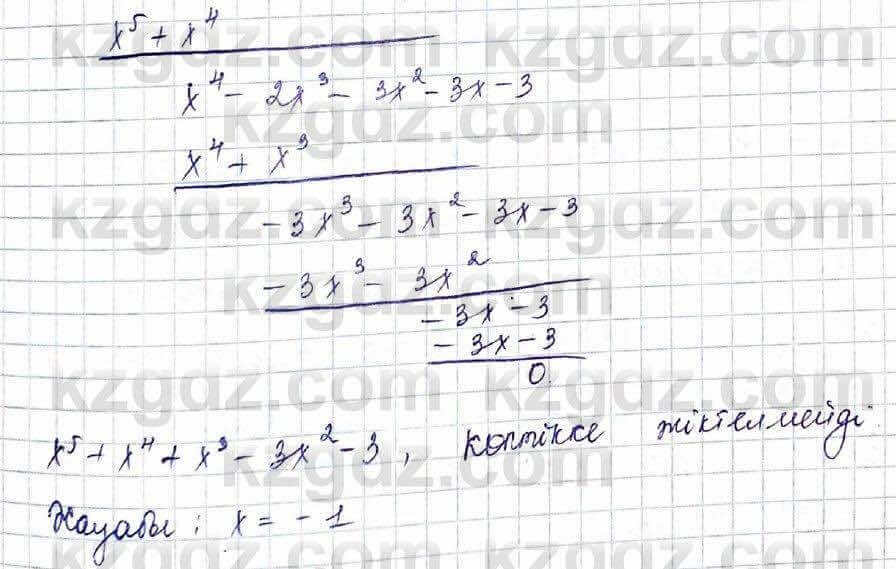 x⁵ + x⁴
x⁴ - 2x³ - 3x² - 3x - 3
x⁴ + x³
-3x³ - 3x² - 3x - 3
-3x³ - 3x²
-3x - 3
-3x - 3
0.
x⁵ + x⁴ + x³ - 3x² - 3, көптікке жіктелмейді
Жауабы: x = -1
kzgdz.com kzgdz.com
kzgdz.com
kzgdz.com kzgdz.com
kzgdz.com
kzgdz.com kzgdz.com
kzgdz.com
kzgdz.com kzgdz.com